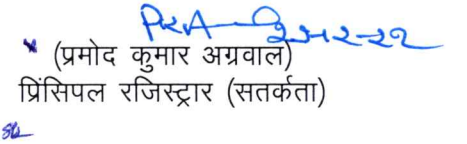 (प्रमोद कुमार अग्रवाल)
प्रिंसिपल रजिस्ट्रार (सतर्कता)